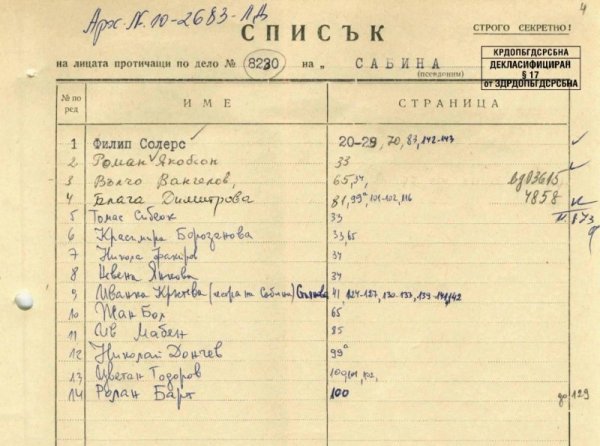 Арх. № 10-2683-ЛД
4
СПИСЪК
СТРОГО СЕКРЕТНО!
на лицата протичащи по дело № 8230 на „ САБИНА
(псевдоним)
КРДОПБГДСРСБНА
ДЕКЛАСИФИЦИРАН
§ 17
от ЗДРДОПБГДСРСБНА
№ по ред ИМЕ СТРАНИЦА
1 Филип Солерс 20-29, 70, 83, 142-143
2 Роман Якобсон 33
3 Вълчо Вангелов, 65, 34,
4 Блага Димитрова 81, 99а, 101-102, 116
03615
4858
5 Томас Сибеок 33
6 Красимира Борозанова 33, 65
7 Никола Факиров 34
8 Цвена Янкова 34
9 Иванка Кръстева (сестра на Сабина) 41, 124-127, 130-133, 139-141, 142
10 Жан Бол 65
11 Ив Мабен 85
12 Николай Дончев 99а
13 Цветан Тодоров
14 Ролан Барт 100
до 129